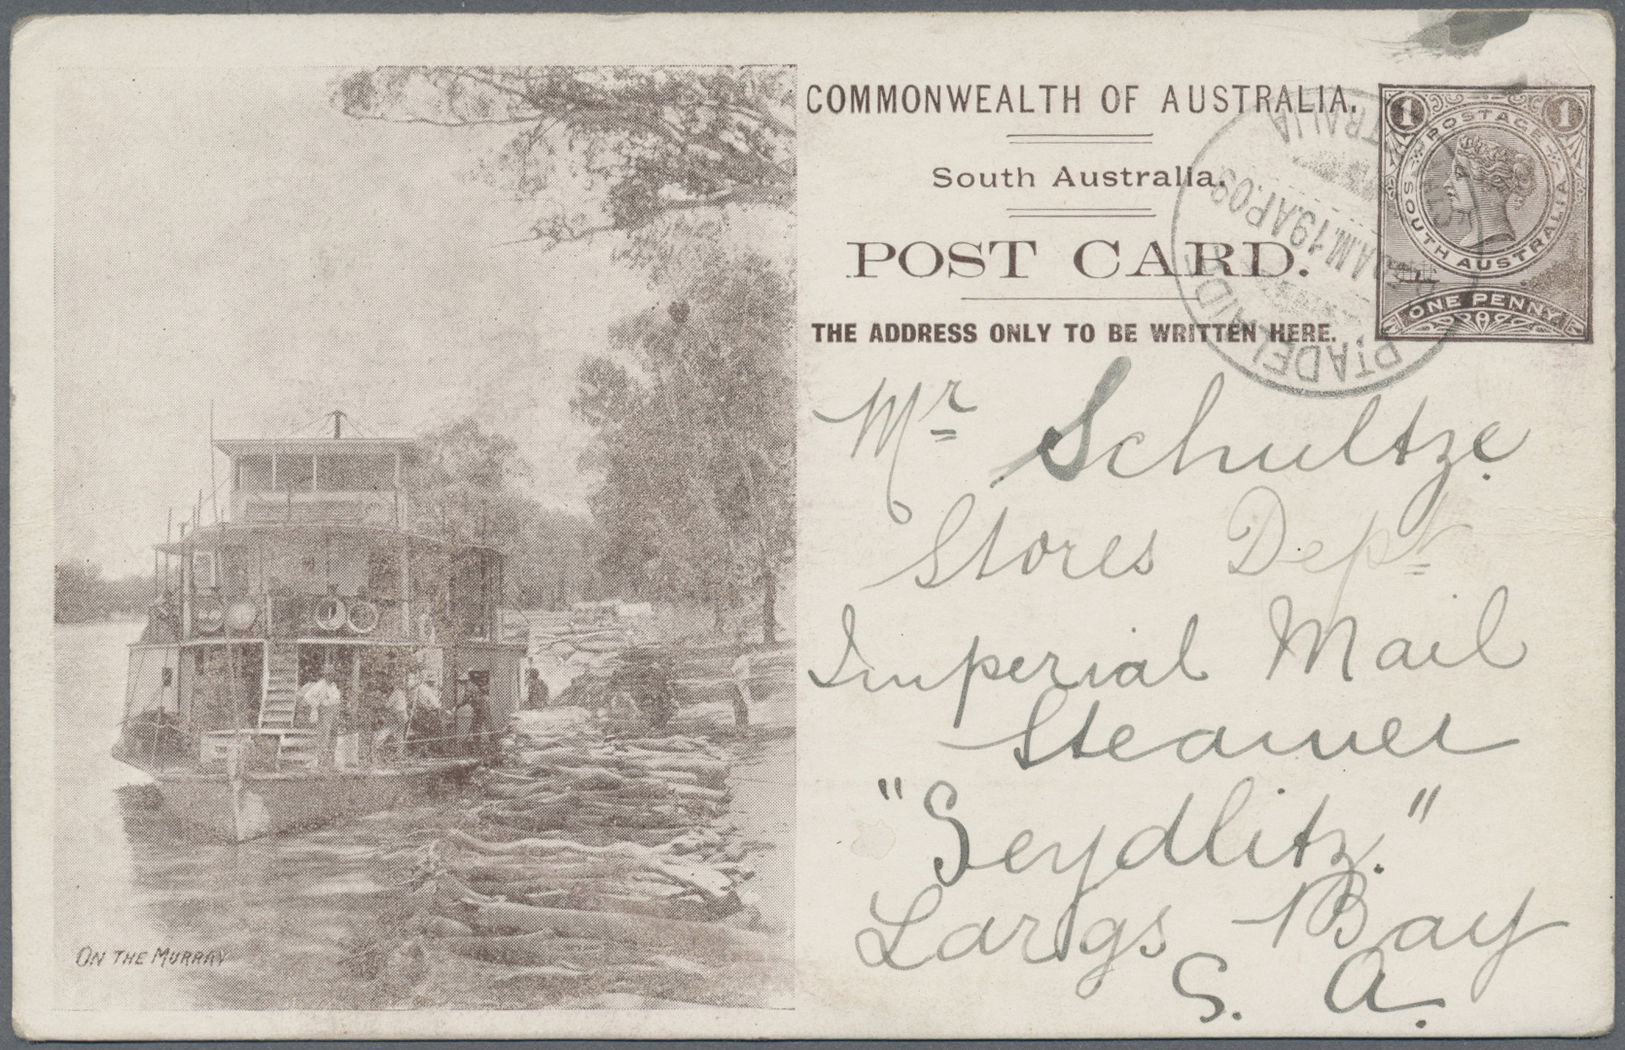 COMMONWEALTH OF AUSTRALIA.
South Australia.
POST CARD.
THE ADDRESS ONLY TO BE WRITTEN HERE.
1 POSTAGE 1
SOUTH AUSTRALIA
ONE PENNY
ADELAIDE
A.M. 19 AP. 09
Mr Schultze.
Stores Dept
Imperial Mail
Steamer
"Seydlitz."
Largs Bay
S. A.
ON THE MURRAY